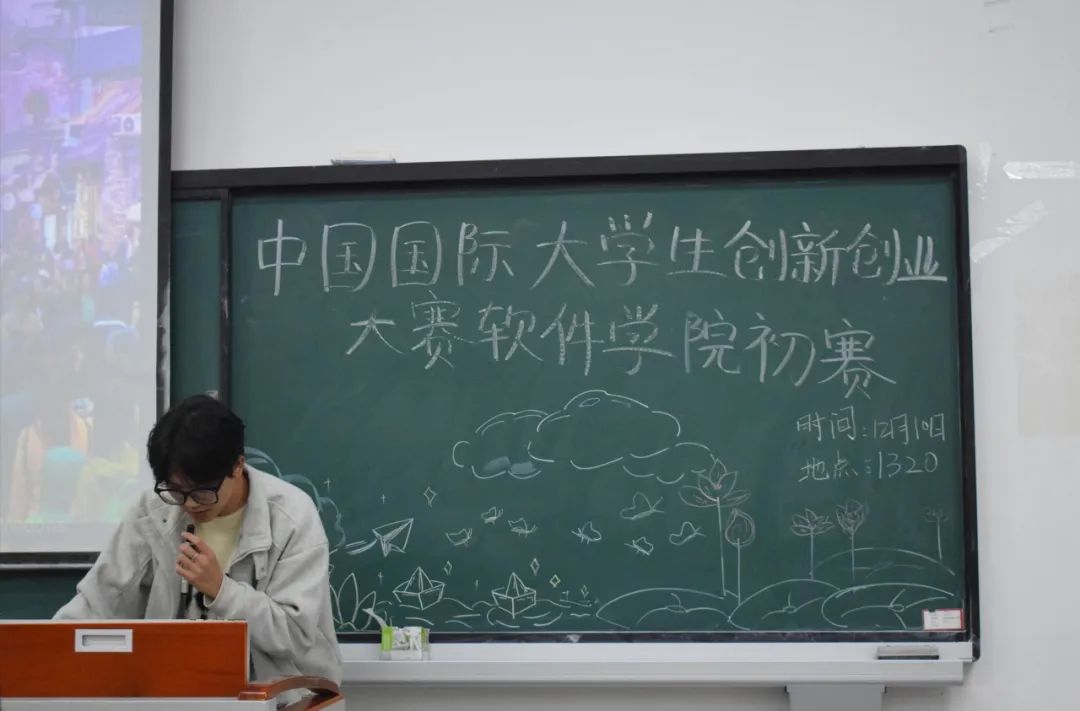 中国国际大学生创新创业
大赛软件学院初赛
时间:12月10日
地点:1320